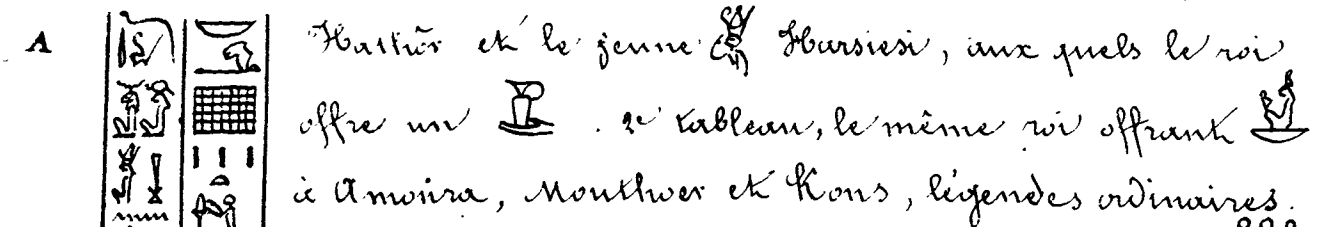 A Hathôr et le jeune Harsiesi, aux quels le roi
offre un . 2e tableau, le même roi offrant
à Amonra, Mouthver et Kons, légendes ordinaires.